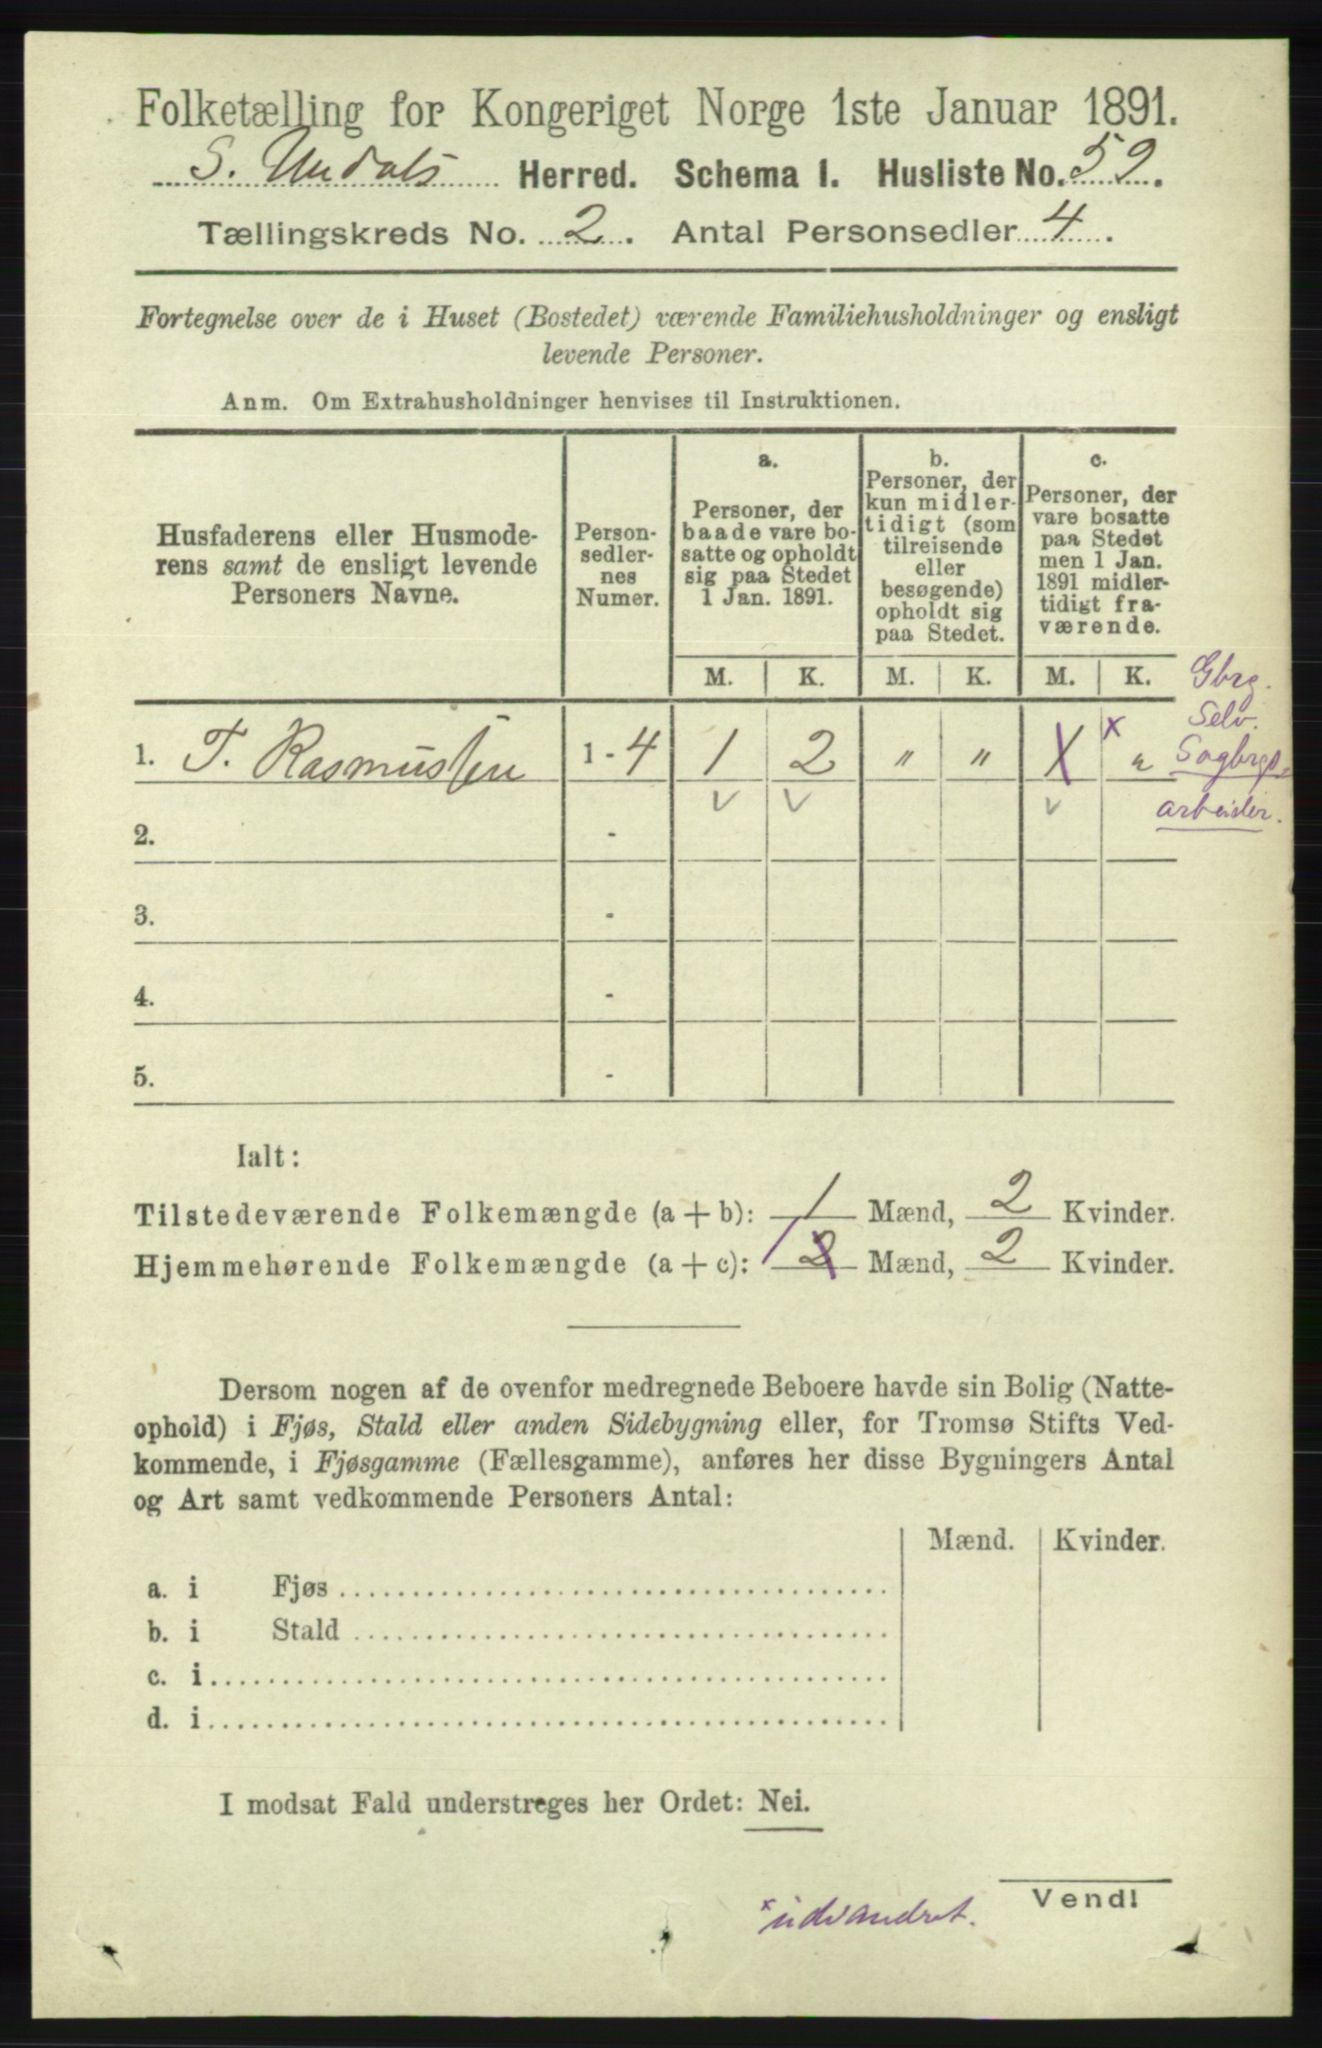 Folketælling for Kongeriget Norge 1ste Januar 1891.
S. Undals Herred. Schema I. Husliste No. 59.
Tællingskreds No. 2. Antal Personsedler 4.
Fortegnelse over de i Huset (Bostedet) værende Familiehusholdninger og ensligt
levende Personer.
Anm. Om Extrahusholdninger henvises til Instruktionen.
Husfaderens eller Husmode-
rens samt de ensligt levende
Personers Navne.
Person-
sedler-
nes
Numer.
a.
Personer, der
baade vare bo-
satte og opholdt
sig paa Stedet
1 Jan. 1891.
b.
Personer, der
kun midler-
tidigt (som
tilreisende
eller
besøgende)
opholdt sig
paa Stedet.
c.
Personer, der
vare bosatte
paa Stedet
men 1 Jan.
1891 midler-
tidigt fra-
værende.
M. K. M. K. M. K.
Gbrg.
Selv.
Sagbrgs-
arbeider.
1. T. Rasmussen 1 - 4 1 2 " " 1 x "
2. -
3. -
4. -
5. -
Ialt:
Tilstedeværende Folkemængde (a + b): 1 Mænd, 2 Kvinder.
Hjemmehørende Folkemængde (a + c): 1 2 Mænd, 2 Kvinder.
Dersom nogen af de ovenfor medregnede Beboere havde sin Bolig (Natte-
ophold) i Fjøs, Stald eller anden Sidebygning eller, for Tromsø Stifts Ved-
kommende, i Fjøsgamme (Fællesgamme), anføres her disse Bygningers Antal
og Art samt vedkommende Personers Antal:
Mænd. Kvinder.
a. i Fjøs
b. i Stald
c. i
d. i
I modsat Fald understreges her Ordet: Nei.
Vend!
x udvandret.